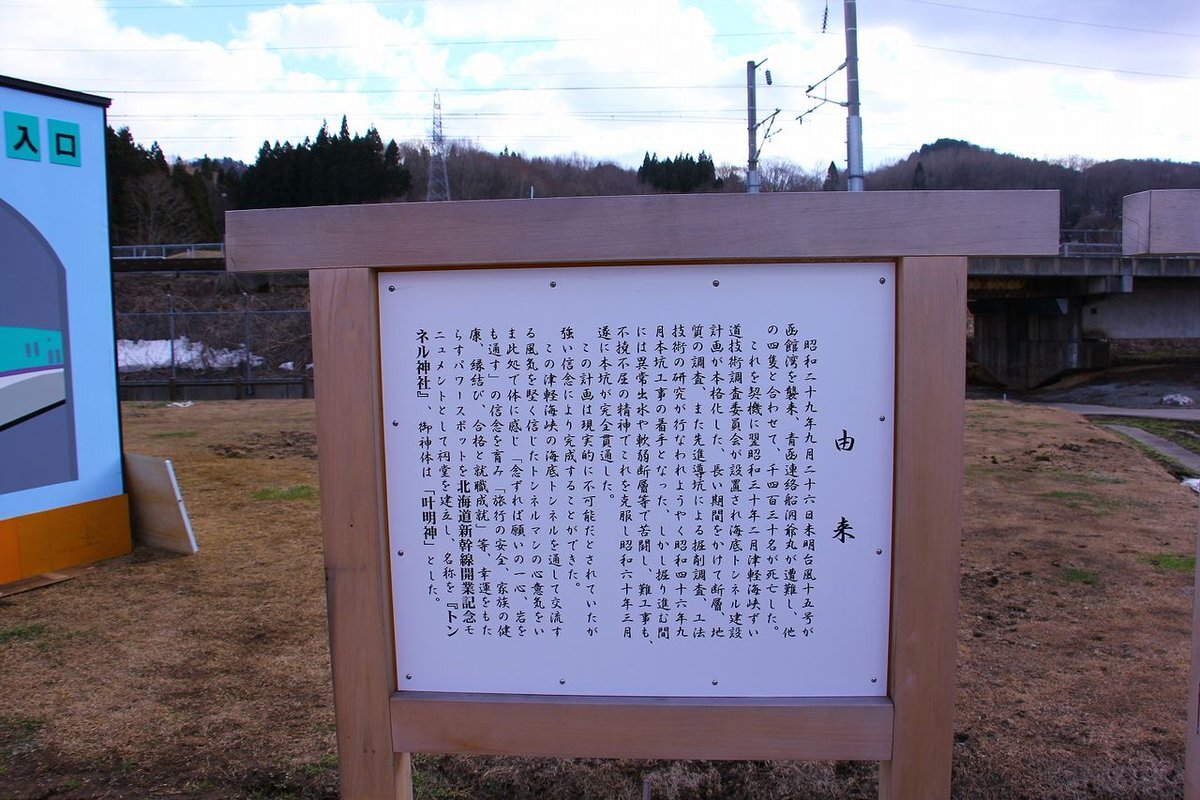 入口
由来
昭和二十九年九月二十六日未明台風十五号が
函館湾を襲来、青函連絡船洞爺丸が遭難し、他
の四隻と合わせて、千四百三十名が死亡した。
これを契機に翌昭和三十年二月津軽海峡ずい
道技術調査委員会が設置され海底トンネル建設
計画が本格化した、長い期間をかけて断層、地
質の調査、また先進導坑による掘削調査、工法
技術の研究が行なわれようやく昭和四十六年九
月本坑工事の着手となった、しかし掘り進む間
には異常出水や軟弱断層等で苦闘し、難工事も、
不撓不屈の精神でこれを克服し昭和六十年三月
遂に本坑が完全貫通した。
この計画は現実的に不可能だとされていたが
強い信念により完成することができた。
この津軽海峡の海底トンネルを通して交流す
る風気を堅く信じたトンネルマンの心意気をい
ま此処で体に感じ「念ずれば願いの一心、岩を
も通す」の信念を育み「旅行の安全、家族の健
康、縁結び、合格と就職成就」等、幸運をもた
らすパワースポットを北海道新幹線開業記念モ
ニュメントとして祠堂を建立し、名称を『トン
ネル神社』、御神体は『叶明神』とした。